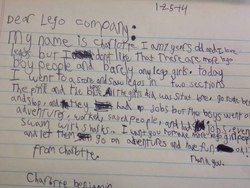 1-25-14
Dear Lego company:
My name is Charlotte. I am 7 years old and I love
legos but I don't like that there are more lego
boy people and barely any lego girls. today
I went to a store and saw legos in two sections
the pink and the blue. All the girls did was sit at home, go to the beach
and shop, and they had no jobs but the boys went on
adventures, worked, saved people, and had jobs, even
swam with sharks. I want you to make more lego girl people
and let them go on adventures and have fun
Thank you.
from Charlotte.
Charlotte